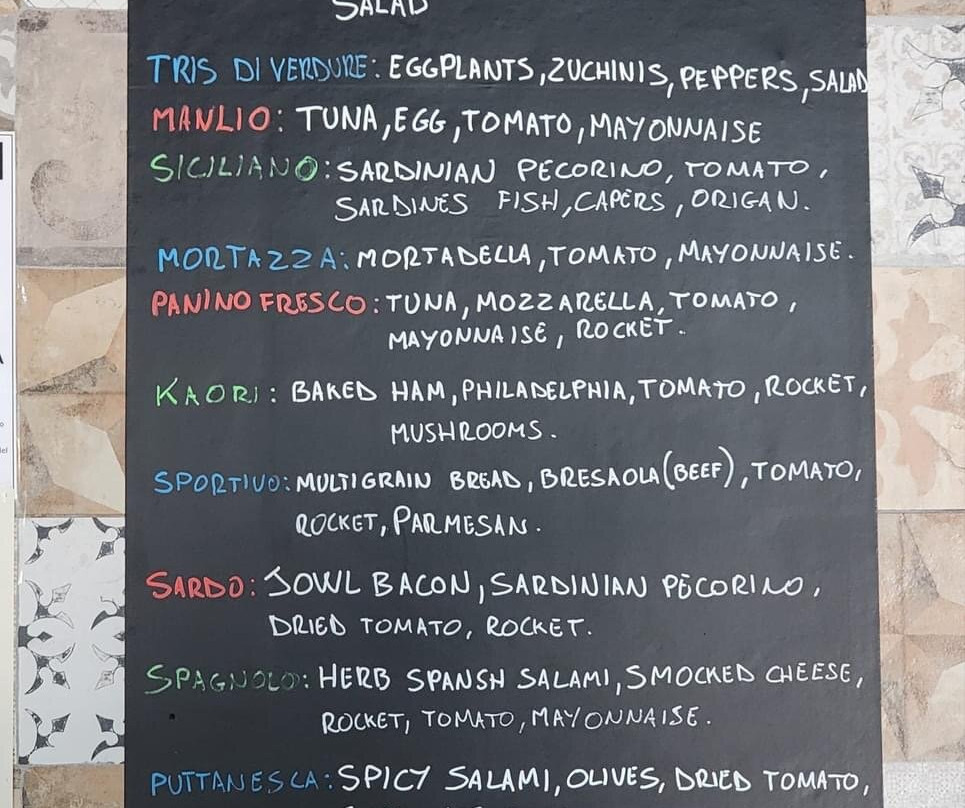 SALAD
TRIS DI VERDURE: EGGPLANTS, ZUCHINIS, PEPPERS, SALAD
MANLIO: TUNA, EGG, TOMATO, MAYONNAISE
SICILIANO: SARDINIAN PECORINO, TOMATO,
SARDINES FISH, CAPERS, ORIGAN.
MORTAZZA: MORTADELLA, TOMATO, MAYONNAISE.
PANINO FRESCO: TUNA, MOZZARELLA, TOMATO,
MAYONNAISE, ROCKET.
KAORI: BAKED HAM, PHILADELPHIA, TOMATO, ROCKET,
MUSHROOMS.
SPORTIVO: MULTIGRAIN BREAD, BRESAOLA (BEEF), TOMATO,
ROCKET, PARMESAN.
SARDO: JOWL BACON, SARDINIAN PECORINO,
DRIED TOMATO, ROCKET.
SPAGNOLO: HERB SPANSH SALAMI, SMOCKED CHEESE,
ROCKET, TOMATO, MAYONNAISE.
PUTTANESCA: SPICY SALAMI, OLIVES, DRIED TOMATO,